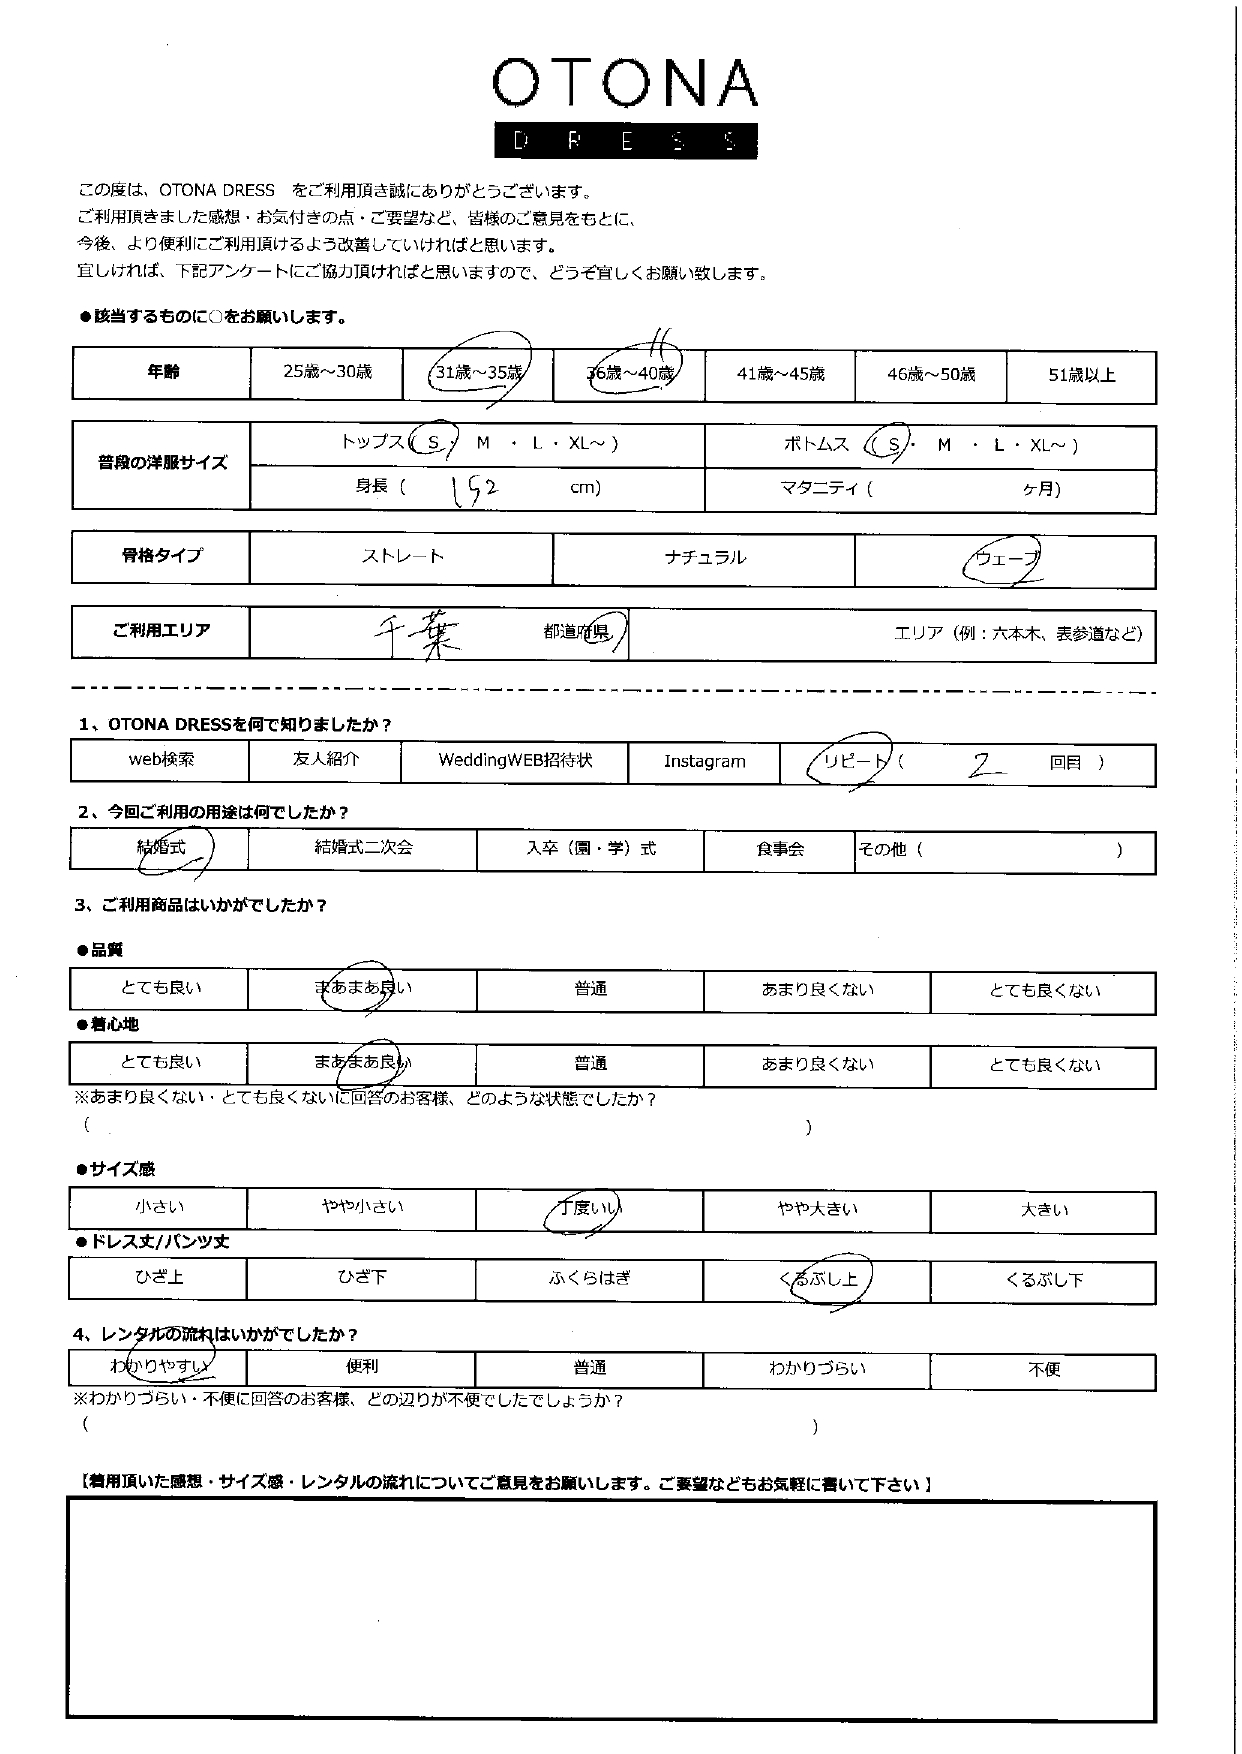 OTONA
DRESS
この度は、OTONA DRESS をご利用頂き誠にありがとうございます。
ご利用頂きました感想・お気付きの点・ご要望など、皆様のご意見をもとに、
今後、より便利にご利用頂けるよう改善していければと思います。
宜しければ、下記アンケートにご協力頂ければと思いますので、どうぞ宜しくお願い致します。
●該当するものに○をお願いします。
年齢 25歳～30歳 31歳～35歳 36歳～40歳 41歳～45歳 46歳～50歳 51歳以上
普段の洋服サイズ トップス( S ・ M ・ L ・ XL～ ) ボトムス ( S ・ M ・ L ・ XL～ )
身長 ( 152 cm) マタニティ ( ヶ月)
骨格タイプ ストレート ナチュラル ウェーブ
ご利用エリア 千葉 都道府県 エリア（例：六本木、表参道など）
1、OTONA DRESSを何で知りましたか？
web検索 友人紹介 WeddingWEB招待状 Instagram リピート ( 2 回目 )
2、今回ご利用の用途は何でしたか？
結婚式 結婚式二次会 入卒（園・学）式 食事会 その他 ( )
3、ご利用商品はいかがでしたか？
●品質
とても良い まあまあ良い 普通 あまり良くない とても良くない
●着心地
とても良い まあまあ良い 普通 あまり良くない とても良くない
※あまり良くない・とても良くないに回答のお客様、どのような状態でしたか？
( )
●サイズ感
小さい やや小さい 丁度いい やや大きい 大きい
●ドレス丈/パンツ丈
ひざ上 ひざ下 ふくらはぎ くるぶし上 くるぶし下
4、レンタルの流れはいかがでしたか？
わかりやすい 便利 普通 わかりづらい 不便
※わかりづらい・不便に回答のお客様、どの辺りが不便でしたでしょうか？
( )
【着用頂いた感想・サイズ感・レンタルの流れについてご意見をお願いします。ご要望などもお気軽に書いて下さい】